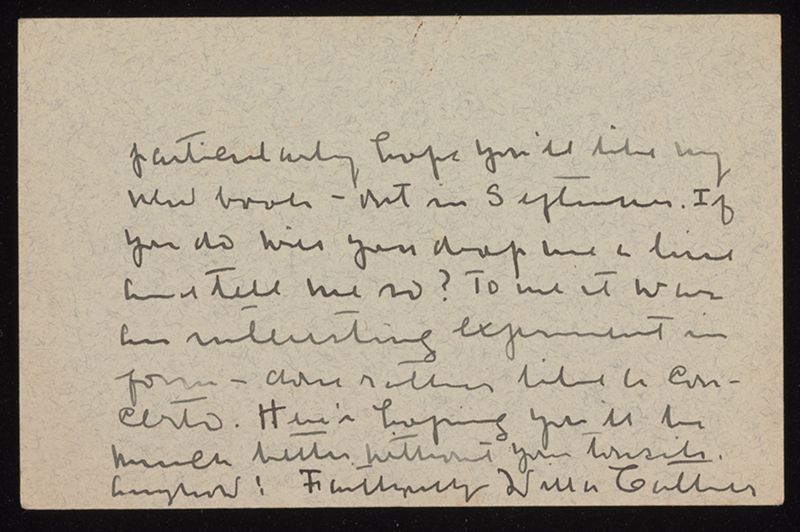 particularly hope you'll like my
new book - out in September. If
you do will you drop me a line
and tell me so? To me it was
an interesting experiment in
form - done rather like a con-
certo. Here's hoping you'll be
much better without your tonsils.
anyhow! Faithfully Willa Cather